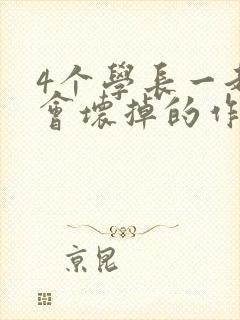 4个學長一
會壞掉的作
京昆